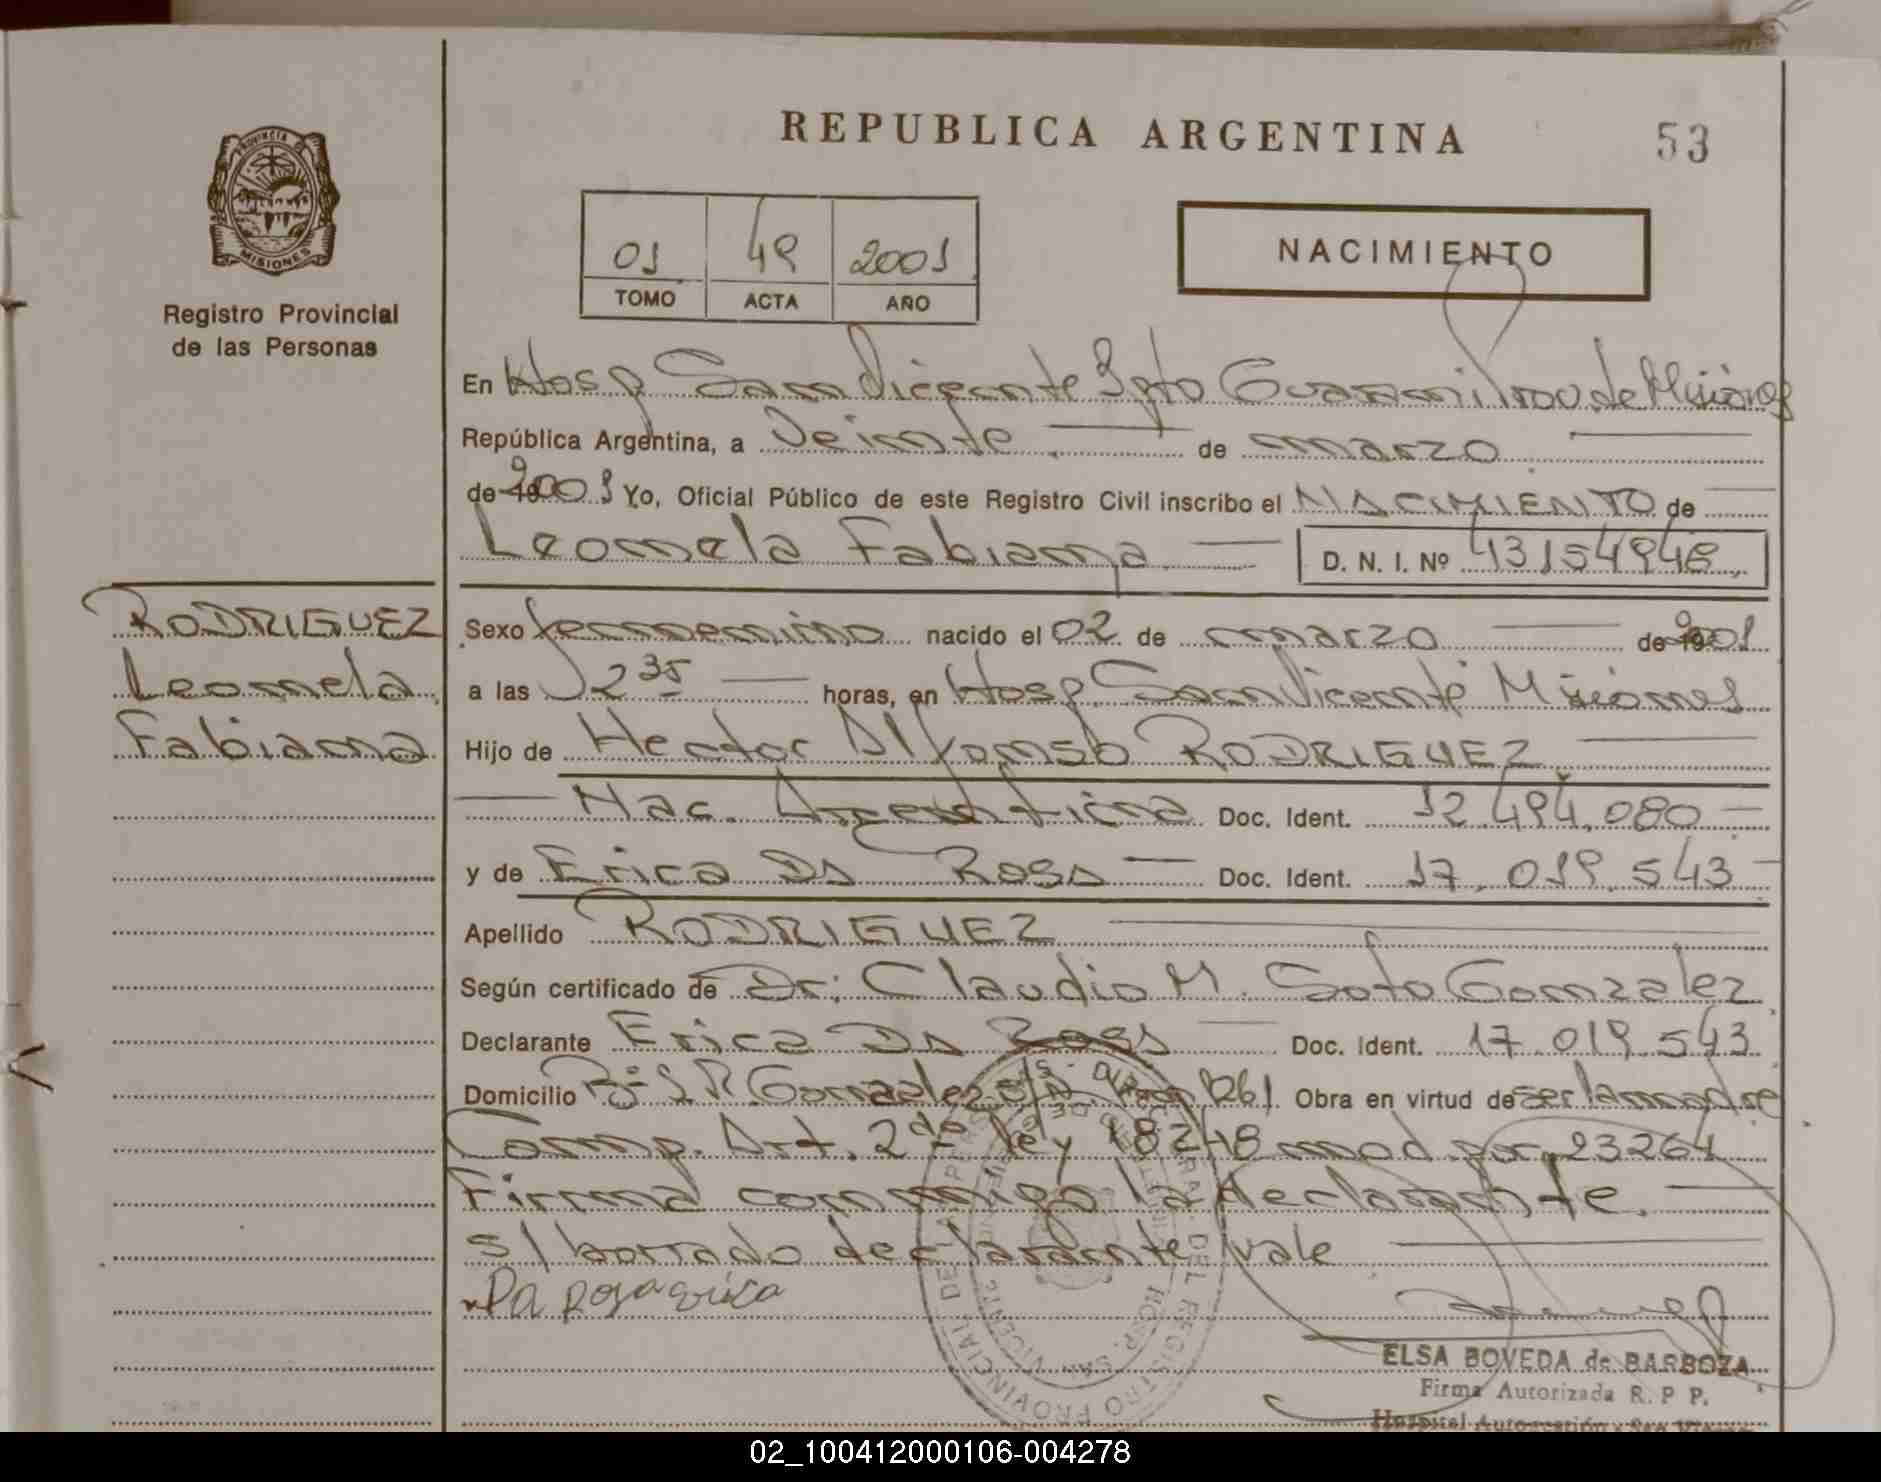 REPUBLICA ARGENTINA
53
PROVINCIA
MISIONES
Registro Provincial
de las Personas
01 49 2001
TOMO ACTA AÑO
NACIMIENTO
En Hosp San Vicente Dpto Guarani Prov. de Misiones
República Argentina, a Veinte de marzo
de 2001 Yo, Oficial Público de este Registro Civil inscribo el NACIMIENTO de
Leonela Fabiana D. N. I. Nº 43154948
RODRIGUEZ
Leonela
Fabiana
Sexo femenino nacido el 02 de marzo de 2001
a las 12 35 horas, en Hosp. San Vicente Misiones
Hijo de Hector Alfonso RODRIGUEZ
Nac. Argentina Doc. Ident. 12.494.080
y de Erica Da Rosa Doc. Ident. 17.019.543
Apellido RODRIGUEZ
Según certificado de Dr: Claudio M. Soto Gonzalez
Declarante Erica Da Rosa Doc. Ident. 17.019.543
Domicilio Bº S R Gonzalez Obra en virtud de ser la madre
Comp. Art. 2do ley 18248 mod. por 23264
Firma conmigo la declarante.
s/ borrado declarante vale
Da Rosa erica
ELSA BOVEDA de BARBOZA
Firma Autorizada R. P P.
Hospital Autogestión San
HOSP. SAN VICENTE
02_100412000106-004278